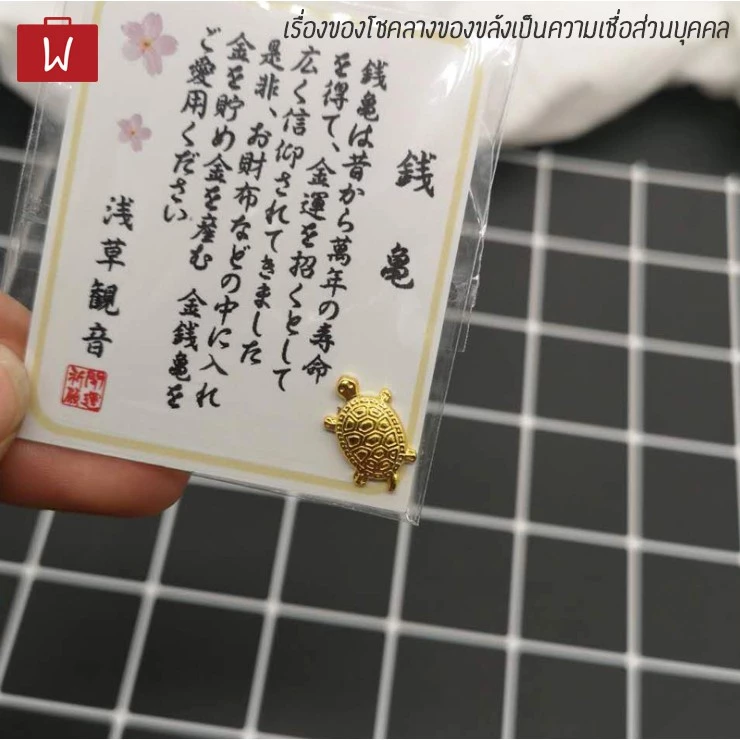 พ
เรื่องของโชคลางของขลังเป็นความเชื่อส่วนบุคคล
銭亀
銭亀は昔から萬年の寿命
を得て、金運を招くとして
広く信仰されてきました
是非、お財布などの中に入れ
金を貯め金を産む 金銭亀を
ご愛用ください
浅草観音
開運
祈願